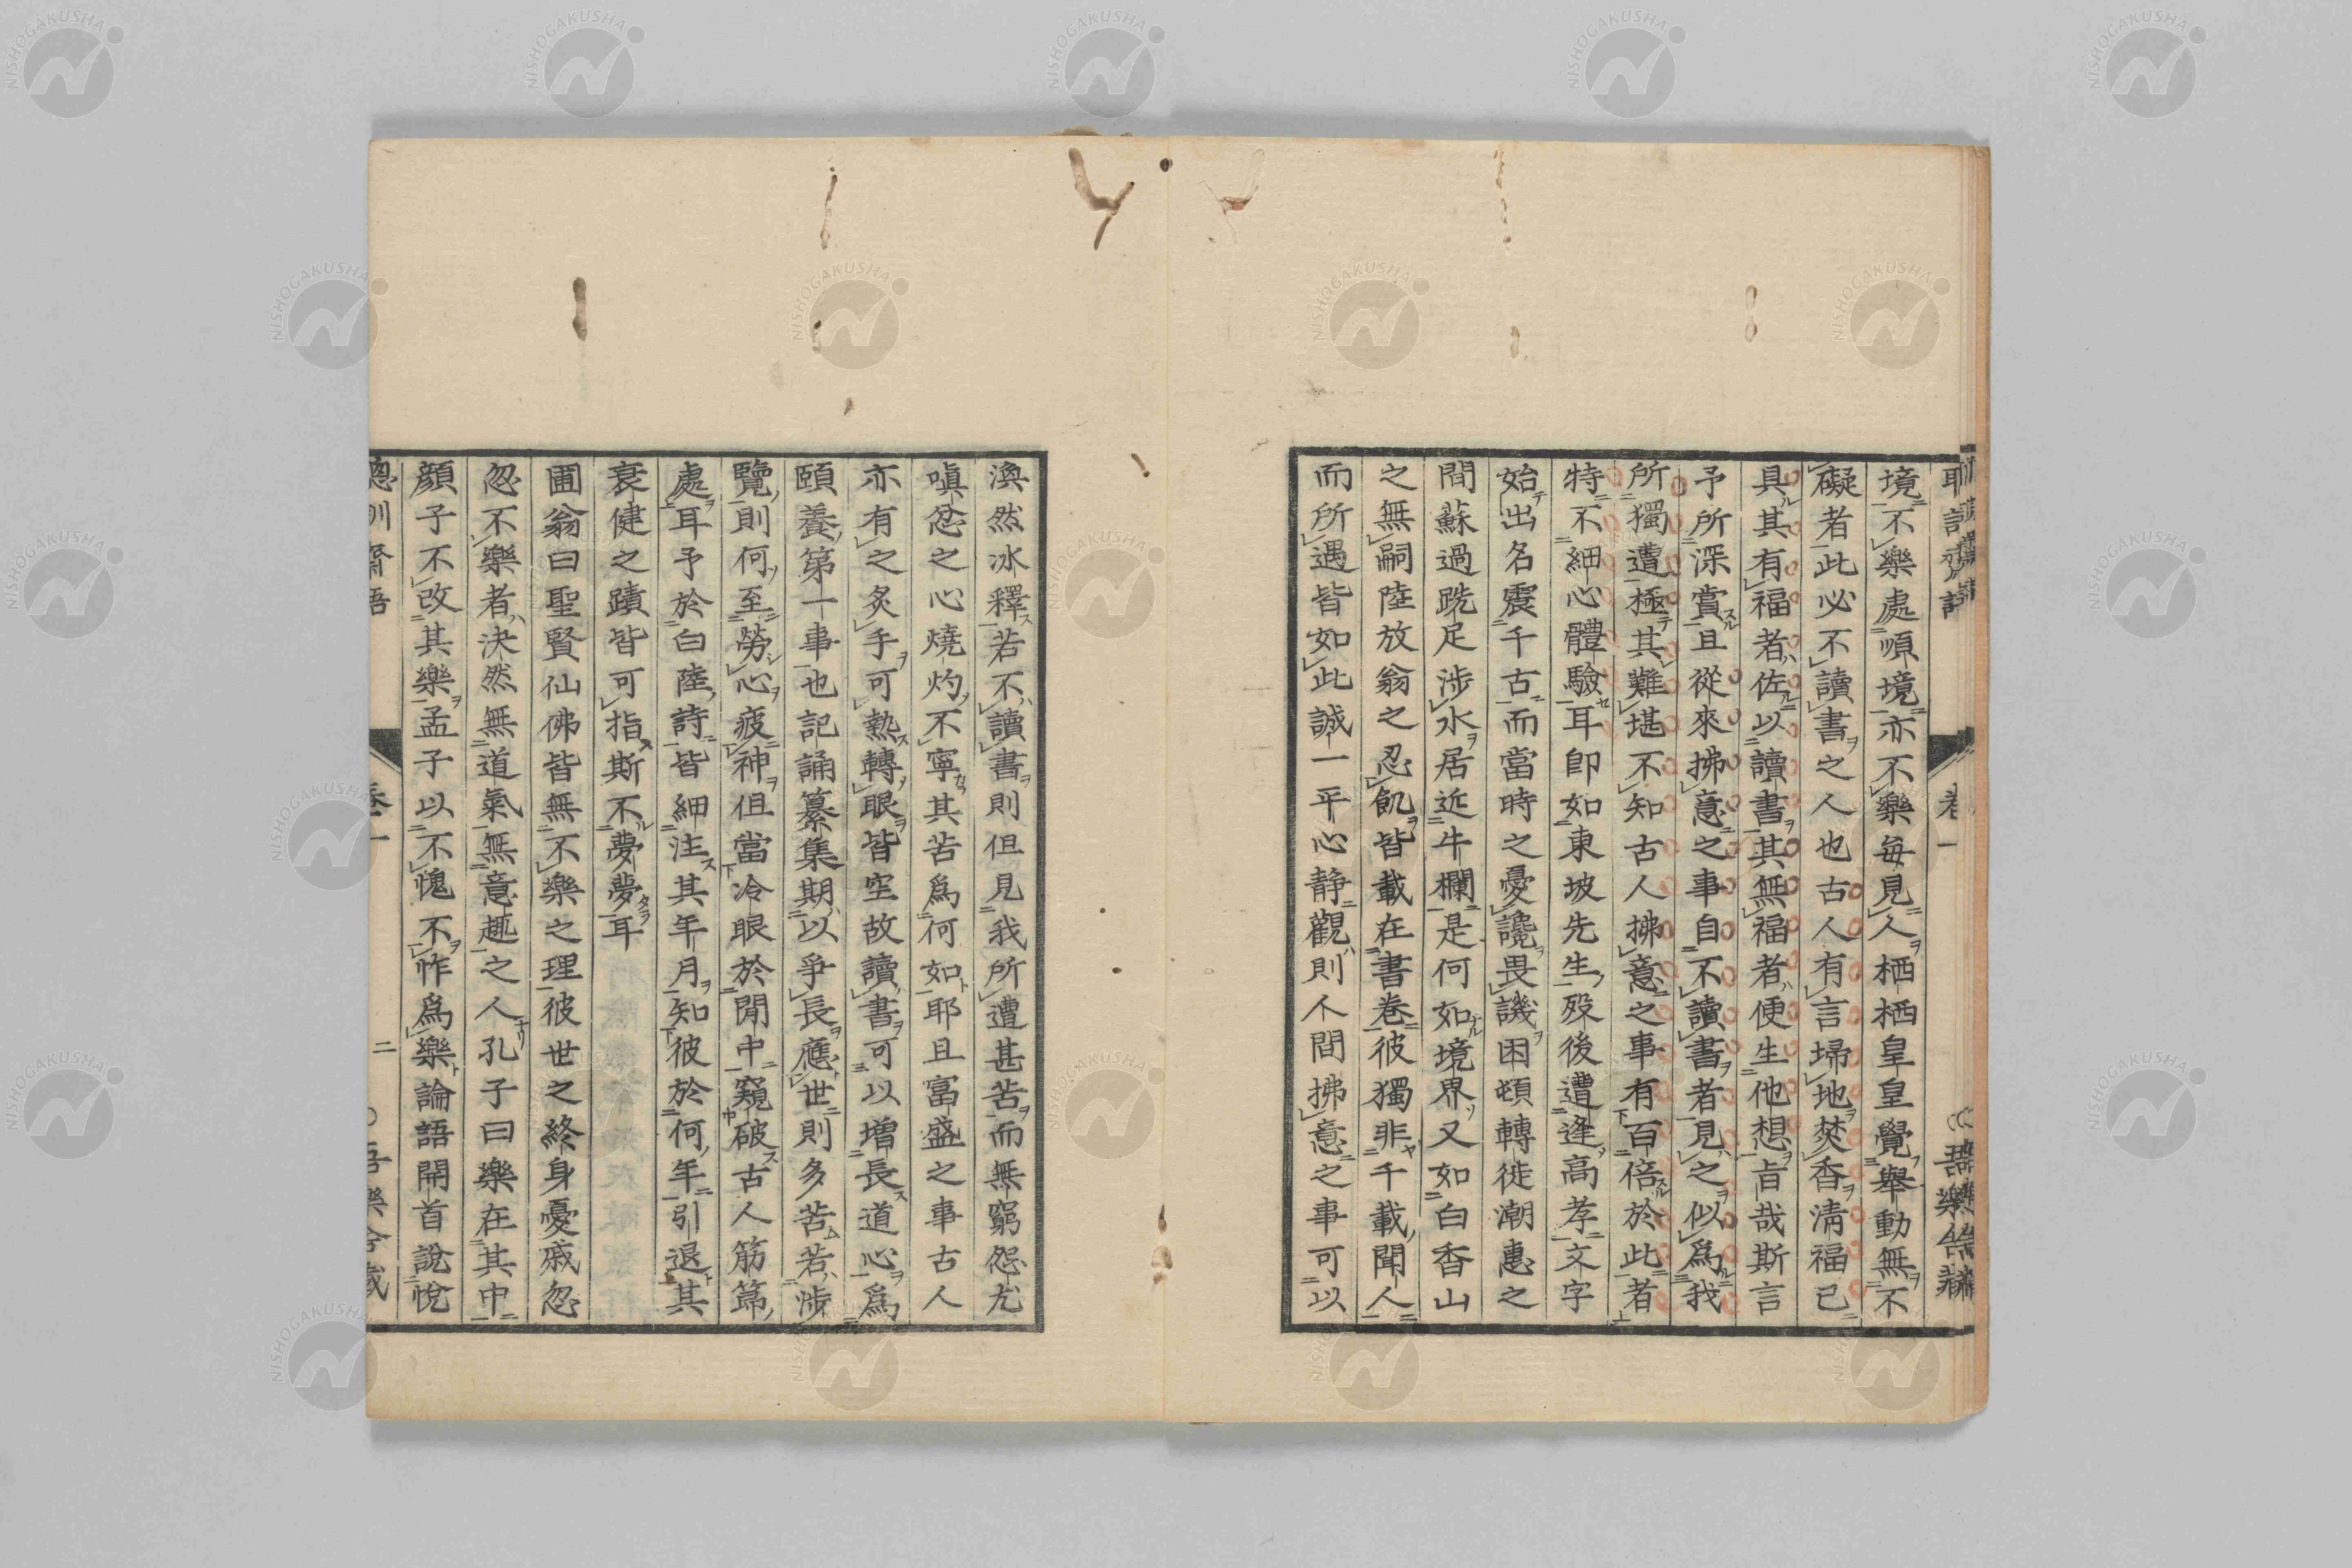 境不樂處順境亦不樂每見人栖栖皇皇覺舉動無不
礙者此必不讀書之人也古人有言埽地焚香清福已
具其有福者佐以讀書其無福者便生他想旨哉斯言
予所深賞且從來拂意之事自不讀書者見之似爲我
所獨遭極其難堪不知古人拂意之事有百倍於此者
特不細心體驗耳卽如東坡先生歿後遭逢高孝文字
始出名震千古而當時之憂讒畏譏困頓轉徙潮惠之
間蘇過跣足涉水居近牛欄是何如境界又如白香山
之無嗣陸放翁之忍飢皆載在書卷彼獨非千載聞人
而所遇皆如此誠一平心靜觀則人間拂意之事可以
渙然冰釋若不讀書則但見我所遭甚苦而無窮怨尤
嗔忿之心燒灼不寧其苦爲何如耶且富盛之事古人
亦有之炙手可熱轉眼皆空故讀書可以增長道心爲
頤養第一事也記誦纂集期以爭長應世則多苦若涉
覽則何至勞心疲神但當冷眼於閒中窺破古人筋節
處耳予於白陸詩皆細注其年月知彼於何年引退其
衰健之蹟皆可指斯不夢夢耳
圃翁曰聖賢仙佛皆無不樂之理彼世之終身憂戚忽
忽不樂者決然無道氣無意趣之人孔子曰樂在其中
顏子不改其樂孟子以不愧不怍爲樂論語開首說悅
卷一
二
NISHOGAKUSHA